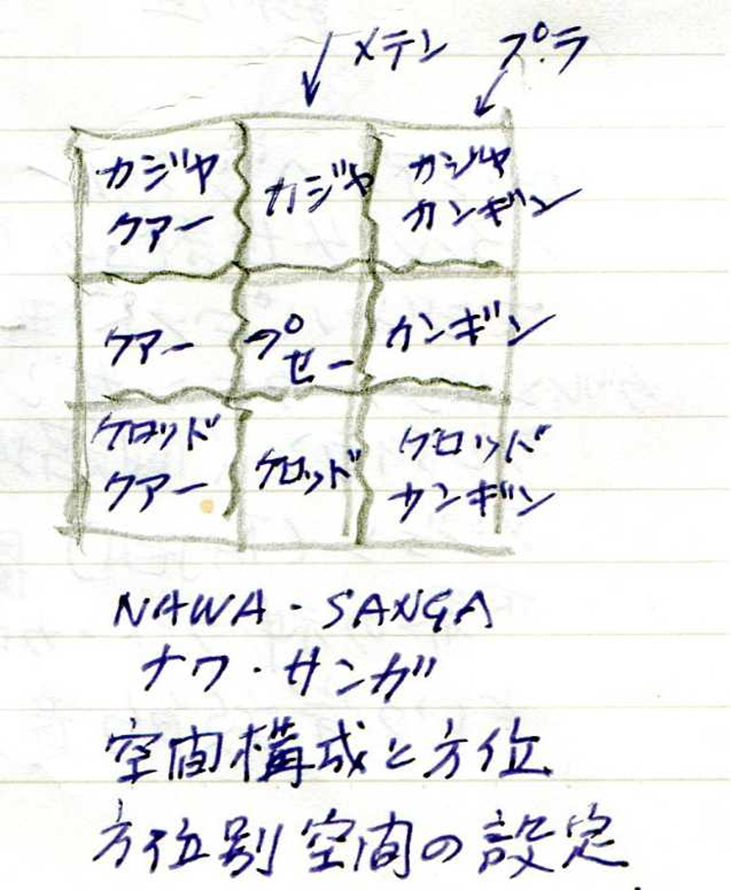 メテン
プラ
カジヤ
クアー
カジヤ
カジヤ
カンギン
クアー
プ
セー
カンギン
ケロッド
クアー
ケロッド
ケロッド
カンギン
NAWA・SANGA
ナワ・サンガ
空間構成と方位
方位別空間の設定.